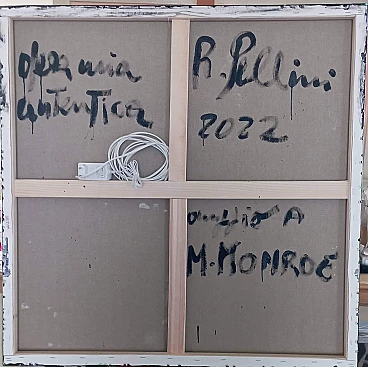 opera mia
autentica
R. Pellini
2022
omaggio A
M. MONROE